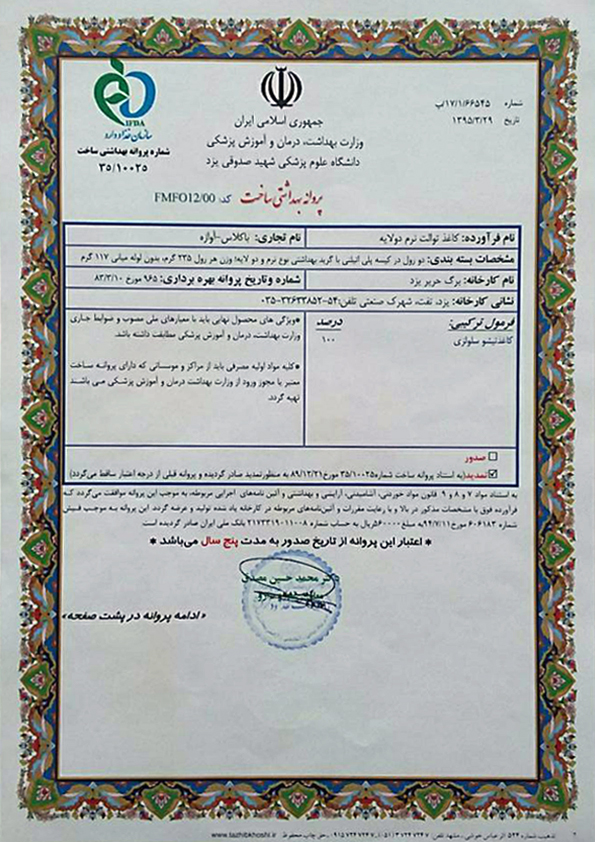 شماره ۱۷/۱/۶۶۵۴۵/پ
تاریخ ۱۳۹۵/۳/۲۹
جمهوری اسلامی ایران
وزارت بهداشت، درمان و آموزش پزشکی
دانشگاه علوم پزشکی شهید صدوقی یزد
IFDA
سازمان غذا و دارو
شماره پروانه بهداشتی ساخت
۳۵/۱۰۰۲۵
پروانه بهداشتی ساخت کد: FMFO12/00
نام فرآورده: کاغذ توالت نرم دولایه
نام تجاری: باکلاس-آوازه
مشخصات بسته بندی: دو رول در کیسه پلی اتیلنی با گرید بهداشتی نوع نرم و دو لایه؛ وزن هر رول ۲۳۵ گرم، بدون لوله میانی ۱۱۷ گرم
نام کارخانه: برگ حریر یزد
شماره و تاریخ پروانه بهره برداری: ۹۶۵ مورخ ۸۳/۳/۱۰
نشانی کارخانه: یزد، تفت، شهرک صنعتی تلفن:۵۴-۳۲۶۳۳۸۵۲-۰۳۵
فرمول ترکیبی: درصد
کاغذتیشو سلولزی ۱۰۰
*ویژگی های محصول نهایی باید با معیارهای ملی مصوب و ضوابط جاری
وزارت بهداشت، درمان و آموزش پزشکی مطابقت داشته باشد.
* کلیه مواد اولیه مصرفی باید از مراکز و موسساتی که دارای پروانه ساخت
معتبر یا مجوز ورود از وزارت بهداشت درمان و آموزش پزشکی می باشند
تهیه گردد.
صدور
تمدید(به استناد پروانه ساخت شماره۳۵/۱۰۰۲۵ مورخ۸۹/۱۲/۲۱ به منظورتمدید صادر گردیده و پروانه قبلی از درجه اعتبار ساقط می‌گردد)
به استناد مواد ۷ و ۸ و ۹ قانون مواد خوردنی، آشامیدنی، آرایشی و بهداشتی و آئین نامه‌های اجرایی مربوطه، به موجب این پروانه موافقت می‌گردد که
فرآورده فوق با مشخصات مذکور در بالا و با رعایت مقررات و آئین‌نامه‌های مربوطه در کارخانه یاد شده تولید و عرضه گردد. این پروانه به موجب فیش
شماره ۶۰۶۱۸۳ مورخ۹۴/۷/۱۱به مبلغ۵۶۰۰۰۰ریال به حساب شماره ۲۱۷۳۳۱۹۰۱۱۰۰۸ بانک ملی ایران صادر گردیده است.
* اعتبار این پروانه از تاریخ صدور به مدت پنج سال می‌باشد *
دکتر محمد حسین مصدق
«ادامه پروانه در پشت صفحه»
www.tazhibkhoshi.ir